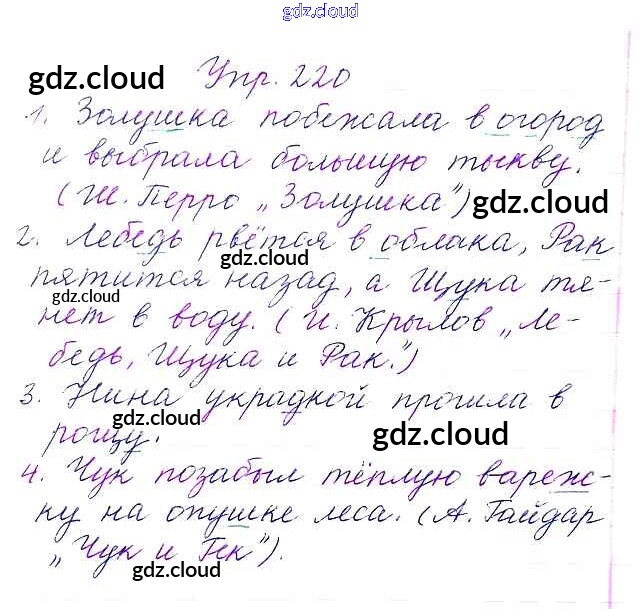 gdz.cloud
gdz.cloud Упр. 220
1. Золушка побежала в огород
gdz.cloud gdz.cloud
и выбрала большую тыкву.
(Ш. Перро „Золушка") gdz.cloud
2. Лебедь рвётся в облака, Рак
gdz.cloud
пятится назад, а Щука тя-
gdz.cloud
нет в воду. (И. Крылов „Ле-
бедь, Щука и Рак.")
3. Нина украдкой прошла в
gdz.cloud gdz.cloud
рощу.
4. Чук позабыл тёплую вареж-
ку на опушке леса. (А. Гайдар
„Чук и Гек").
gdz.cloud